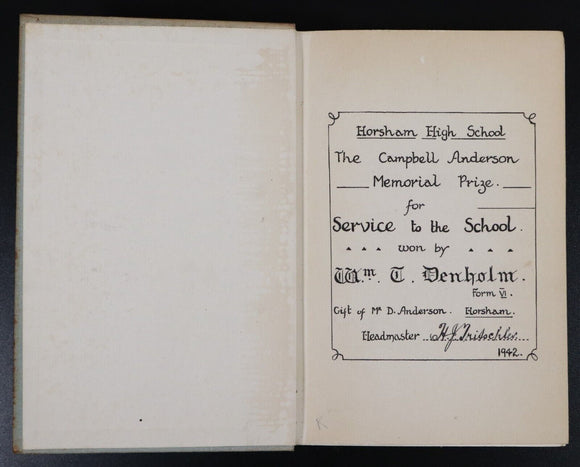 Horsham High School
The Campbell Anderson
Memorial Prize.
for
Service to the School.
won by
Wm. T. Denholm.
Form VI.
Gift of Mr D. Anderson. Horsham.
Headmaster H.J. Tritschler
1942.